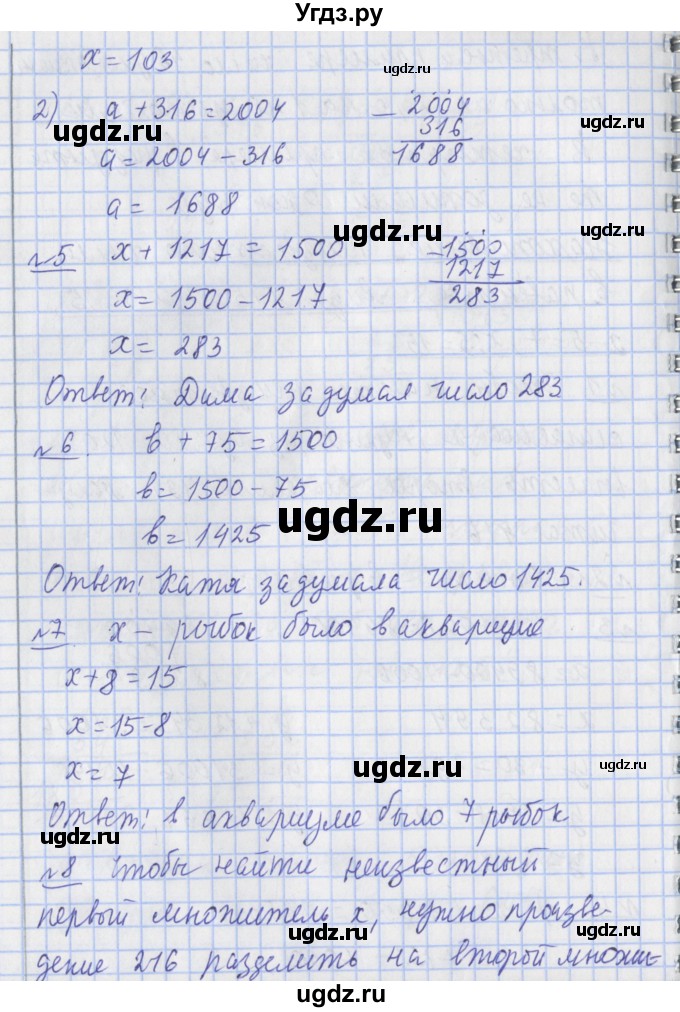 Угдз.ру
x = 103
2) a + 316 = 2004
a = 2004 - 316
a = 1688
- 2004
316
1688
ugdz.ru
ugdz.ru
№5 x + 1217 = 1500
x = 1500 - 1217
x = 283
- 1500
1217
283
ugdz.ru
ugdz.ru
Ответ: Дима задумал число 283
№6. в + 75 = 1500
в = 1500 - 75
в = 1425
ugdz.ru
ugdz.ru
ugdz.ru
Ответ: Катя задумала число 1425.
№7 x – рыбок было в аквариуме
x + 8 = 15
x = 15 - 8
x = 7
ugdz.ru
ugdz.ru
Ответ: в аквариуме было 7 рыбок
№8 Чтобы найти неизвестный
первый множитель x, нужно произве-
дение 216 разделить на второй множи-
ugdz.ru
ugdz.ru
ugdz.ru